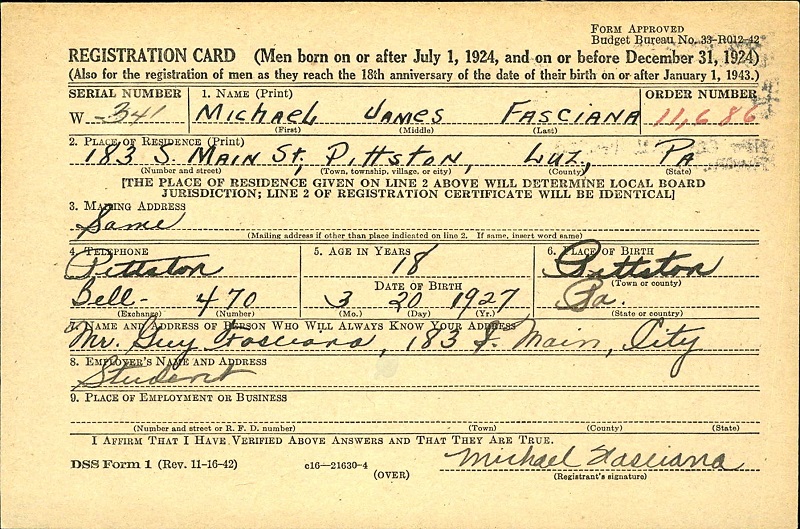 FORM APPROVED
Budget Bureau No. 33-R012-42
REGISTRATION CARD (Men born on or after July 1, 1924, and on or before December 31, 1924)
(Also for the registration of men as they reach the 18th anniversary of the date of their birth on or after January 1, 1943.)
SERIAL NUMBER 1. NAME (Print) ORDER NUMBER
W-341 MICHAEL JAMES FASCIANA 11,686
(First) (Middle) (Last)
2. PLACE OF RESIDENCE (Print)
183 S. MAIN ST, PITTSTON, LUZ., PA
(Number and street) (Town, township, village, or city) (County) (State)
[THE PLACE OF RESIDENCE GIVEN ON LINE 2 ABOVE WILL DETERMINE LOCAL BOARD
JURISDICTION; LINE 2 OF REGISTRATION CERTIFICATE WILL BE IDENTICAL]
3. MAILING ADDRESS
Same
(Mailing address if other than place indicated on line 2. If same, insert word same)
4. TELEPHONE 5. AGE IN YEARS 6. PLACE OF BIRTH
Pittston 18 Pittston
DATE OF BIRTH (Town or county)
Bell- 470 3 20 1927 Pa.
(Exchange) (Number) (Mo.) (Day) (Yr.) (State or country)
7. NAME AND ADDRESS OF PERSON WHO WILL ALWAYS KNOW YOUR ADDRESS
Mr. Guy Fasciana, 183 S. Main, City
8. EMPLOYER'S NAME AND ADDRESS
Student
9. PLACE OF EMPLOYMENT OR BUSINESS
(Number and street or R. F. D. number) (Town) (County) (State)
I AFFIRM THAT I HAVE VERIFIED ABOVE ANSWERS AND THAT THEY ARE TRUE.
DSS Form 1 (Rev. 11-16-42) c16-21630-4 Michael Fasciana
(OVER) (Registrant's signature)